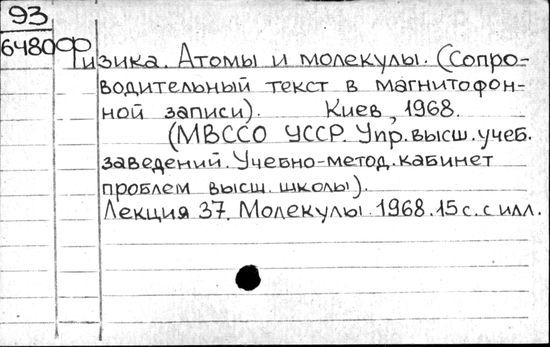 93
6480
Физика. Атомы и молекулы. (Сопро-
водительный текст в магнитофон-
ной записи). Киев, 1968.
(МВССО УССР. Упр. высш. учеб.
заведений. Учебно-метод. кабинет
проблем высш. школы).
Лекция 37. Молекулы. 1968. 15 с. с илл.